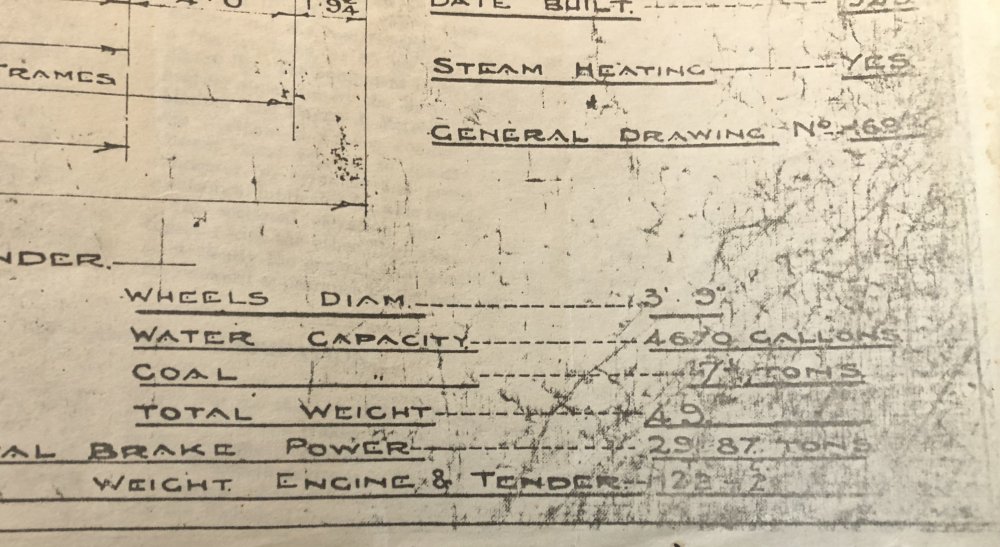 DATE BUILT.
STEAM HEATING YES
FRAMES
GENERAL DRAWING Nº 169
NDER.
WHEELS DIAM. 3' 9"
WATER CAPACITY 4670 GALLONS
COAL " 7 TONS
TOTAL WEIGHT 49
AL BRAKE POWER 29.87 TONS
WEIGHT ENGINE & TENDER